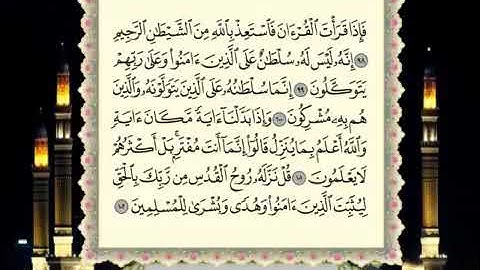 فَإِذَا قَرَأْتَ الْقُرْءَانَ فَاسْتَعِذْ بِاللَّهِ مِنَ الشَّيْطَانِ الرَّجِيمِ
٩٨ إِنَّهُ لَيْسَ لَهُ سُلْطَانٌ عَلَى الَّذِينَ ءَامَنُوا وَعَلَى رَبِّهِمْ
يَتَوَكَّلُونَ ٩٩ إِنَّمَا سُلْطَانُهُ عَلَى الَّذِينَ يَتَوَلَّوْنَهُ وَالَّذِينَ
هُم بِهِ مُشْرِكُونَ ١٠٠ وَإِذَا بَدَّلْنَا ءَايَةً مَّكَانَ ءَايَةٍ
وَاللَّهُ أَعْلَمُ بِمَا يُنَزِّلُ قَالُوا إِنَّمَا أَنتَ مُفْتَرٍ بَلْ أَكْثَرُهُمْ
لَا يَعْلَمُونَ ١٠١ قُلْ نَزَّلَهُ رُوحُ الْقُدُسِ مِن رَّبِّكَ بِالْحَقِّ
لِيُثَبِّتَ الَّذِينَ ءَامَنُوا وَهُدًى وَبُشْرَى لِلْمُسْلِمِينَ ١٠٢